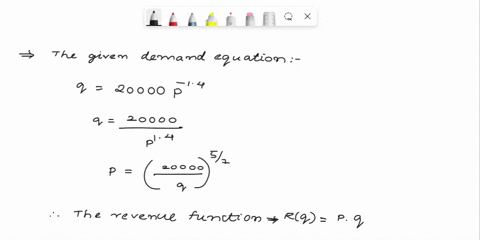 ⇒ The given demand equation :-
q = 20000 p^{-1.4}
q = \frac{20000}{p^{1.4}}
P = \left(\frac{20000}{q}\right)^{5/7}
∴ The revenue function → R(q) = P.q